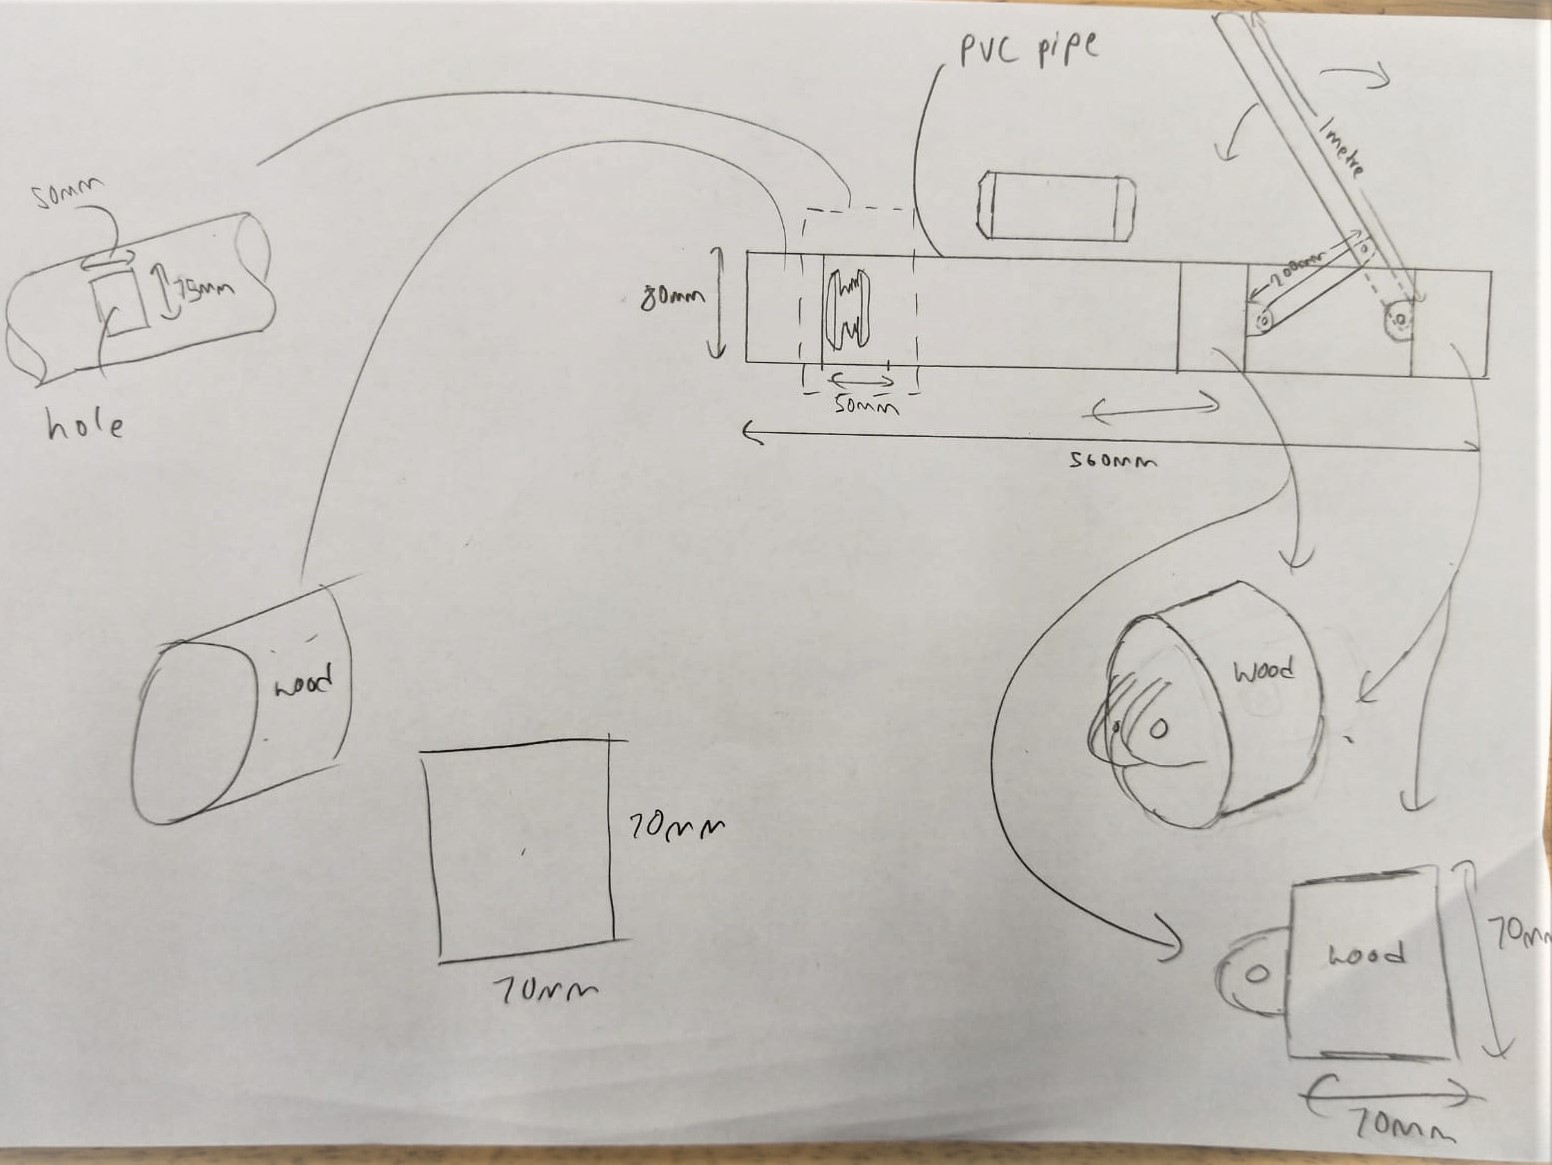 PVC pipe
1metre
50mm
75mm
hole
80mm
200mm
50mm
560mm
wood
wood
70mm
70mm
wood
70mm
70mm